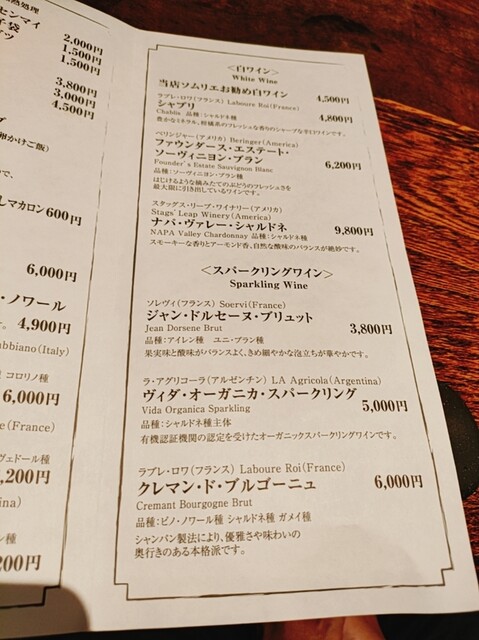 センマイ
2,000円
1,500円
1,500円
3,800円
3,000円
4,500円
卵かけご飯）
しマカロン600円
6,000円
・ノワール
4,900円
abbiano(Italy)
コロリノ種
6,000円
(France)
ヴェドール種
,200円
ina)
ン種
200円
＜白ワイン＞
White Wine
当店ソムリエお勧め白ワイン 4,500円
ラブレ・ロワ(フランス) Laboure Roi(France)
シャブリ 4,800円
Chablis 品種：シャルドネ種
豊かなミネラル、柑橘系のフレッシュな香りのシャープな辛口ワインです。
ベリンジャー(アメリカ) Beringer(America)
ファウンダース・エステート・
ソーヴィニヨン・ブラン 6,200円
Founder's Estate Sauvignon Blanc
品種：ソーヴィニヨン・ブラン種
はじけるような摘みたてのぶどうのフレッシュさを
最大限に引き出しているワインです。
スタッグス・リープ・ワイナリー(アメリカ)
Stags' Leap Winery(America)
ナパ・ヴァレー・シャルドネ 9,800円
NAPA Valley Chardonnay 品種：シャルドネ種
スモーキーな香りとアーモンド香、自然な酸味のバランスが絶妙です。
＜スパークリングワイン＞
Sparkling Wine
ソレヴィ(フランス) Soervi(France)
ジャン・ドルセーヌ・ブリュット 3,800円
Jean Dorsene Brut
品種：アイレン種 ユニ・ブラン種
果実味と酸味がバランスよく、きめ細やかな泡立ちが華やかです。
ラ・アグリコーラ(アルゼンチン) LA Agricola(Argentina)
ヴィダ・オーガニカ・スパークリング 5,000円
Vida Organica Sparkling
品種：シャルドネ種主体
有機認証機関の認定を受けたオーガニックスパークリングワインです。
ラブレ・ロワ(フランス) Laboure Roi(France)
クレマン・ド・ブルゴーニュ 6,000円
Cremant Bourgogne Brut
品種：ピノ・ノワール種 シャルドネ種 ガメイ種
シャンパン製法により、優雅さや味わいの
奥行きのある本格派です。